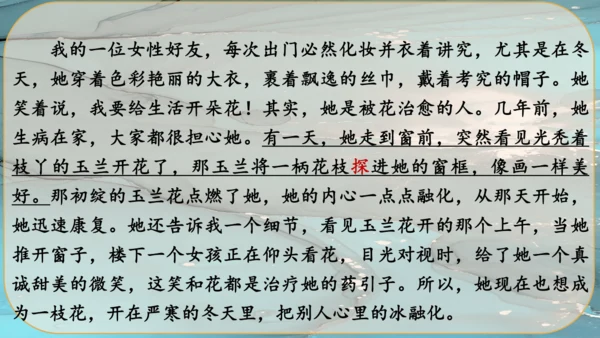 我的一位女性好友，每次出门必然化妆并衣着讲究，尤其是在冬
天，她穿着色彩艳丽的大衣，裹着飘逸的丝巾，戴着考究的帽子。她
笑着说，我要给生活开朵花！其实，她是被花治愈的人。几年前，她
生病在家，大家都很担心她。有一天，她走到窗前，突然看见光秃着
枝丫的玉兰开花了，那玉兰将一柄花枝探进她的窗框，像画一样美
好。那初绽的玉兰花点燃了她，她的内心一点点融化，从那天开始，
她迅速康复。她还告诉我一个细节，看见玉兰花开的那个上午，当她
推开窗子，楼下一个女孩正在仰头看花，目光对视时，给了她一个真
诚甜美的微笑，这笑和花都是治疗她的药引子。所以，她现在也想成
为一枝花，开在严寒的冬天里，把别人心里的冰融化。